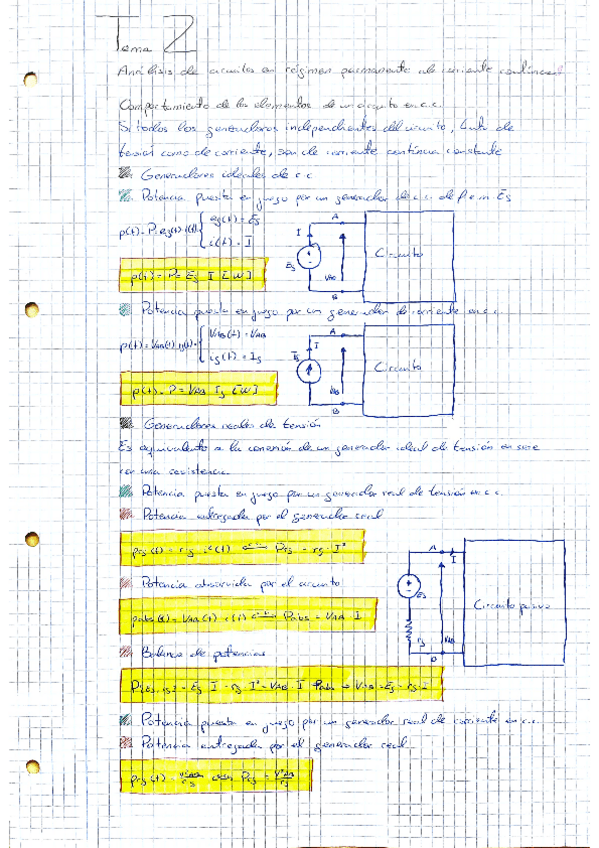 Tema 2
Análisis de circuitos en régimen permanente de corriente continua
Comportamiento de los elementos de un circuito en c.c.
Si todos los generadores independientes del circuito, tanto de
tensión como de corriente, son de corriente continua constante
Generadores ideales de c.c
Potencia puesta en juego por un generador de c.c. de f.e.m Es
p(t) = P. eg(t) · i(t) { eg(t) = Eg
i(t) = I
p(t) = P = Eg I [W]
A
I
Eg
VAB
B
Circuito
Potencia puesta en juego por un generador de corriente en c.c.
p(t) = VAB(t) · ig(t) = { VAB(t) = VAB
ig(t) = Ig
p(t) = P = VAB Ig [W]
A
I
Ig
VAB
B
Circuito
Generadores reales de tensión
Es equivalente a la conexión de un generador ideal de tensión en serie
con una resistencia
Potencia puesta en juego por un generador real de tensión en c.c.
Potencia entregada por el generador real
prg(t) = rg · i²(t) Prg = rg · I²
Potencia absorvida por el circuito
pabs(t) = VAB(t) · i(t) Pabs = VAB · I
A
I
Eg
rg
VAB
B
Circuito pasivo
Balance de potencias
Eg I - rg I² = VAB · I Pabs → VAB = Eg - rg · I
Potencia puesta en juego por un generador real de corriente en c.c.
Potencia entregada por el generador real
prg(t) = V²AB/rg Prg = V²AB/rg